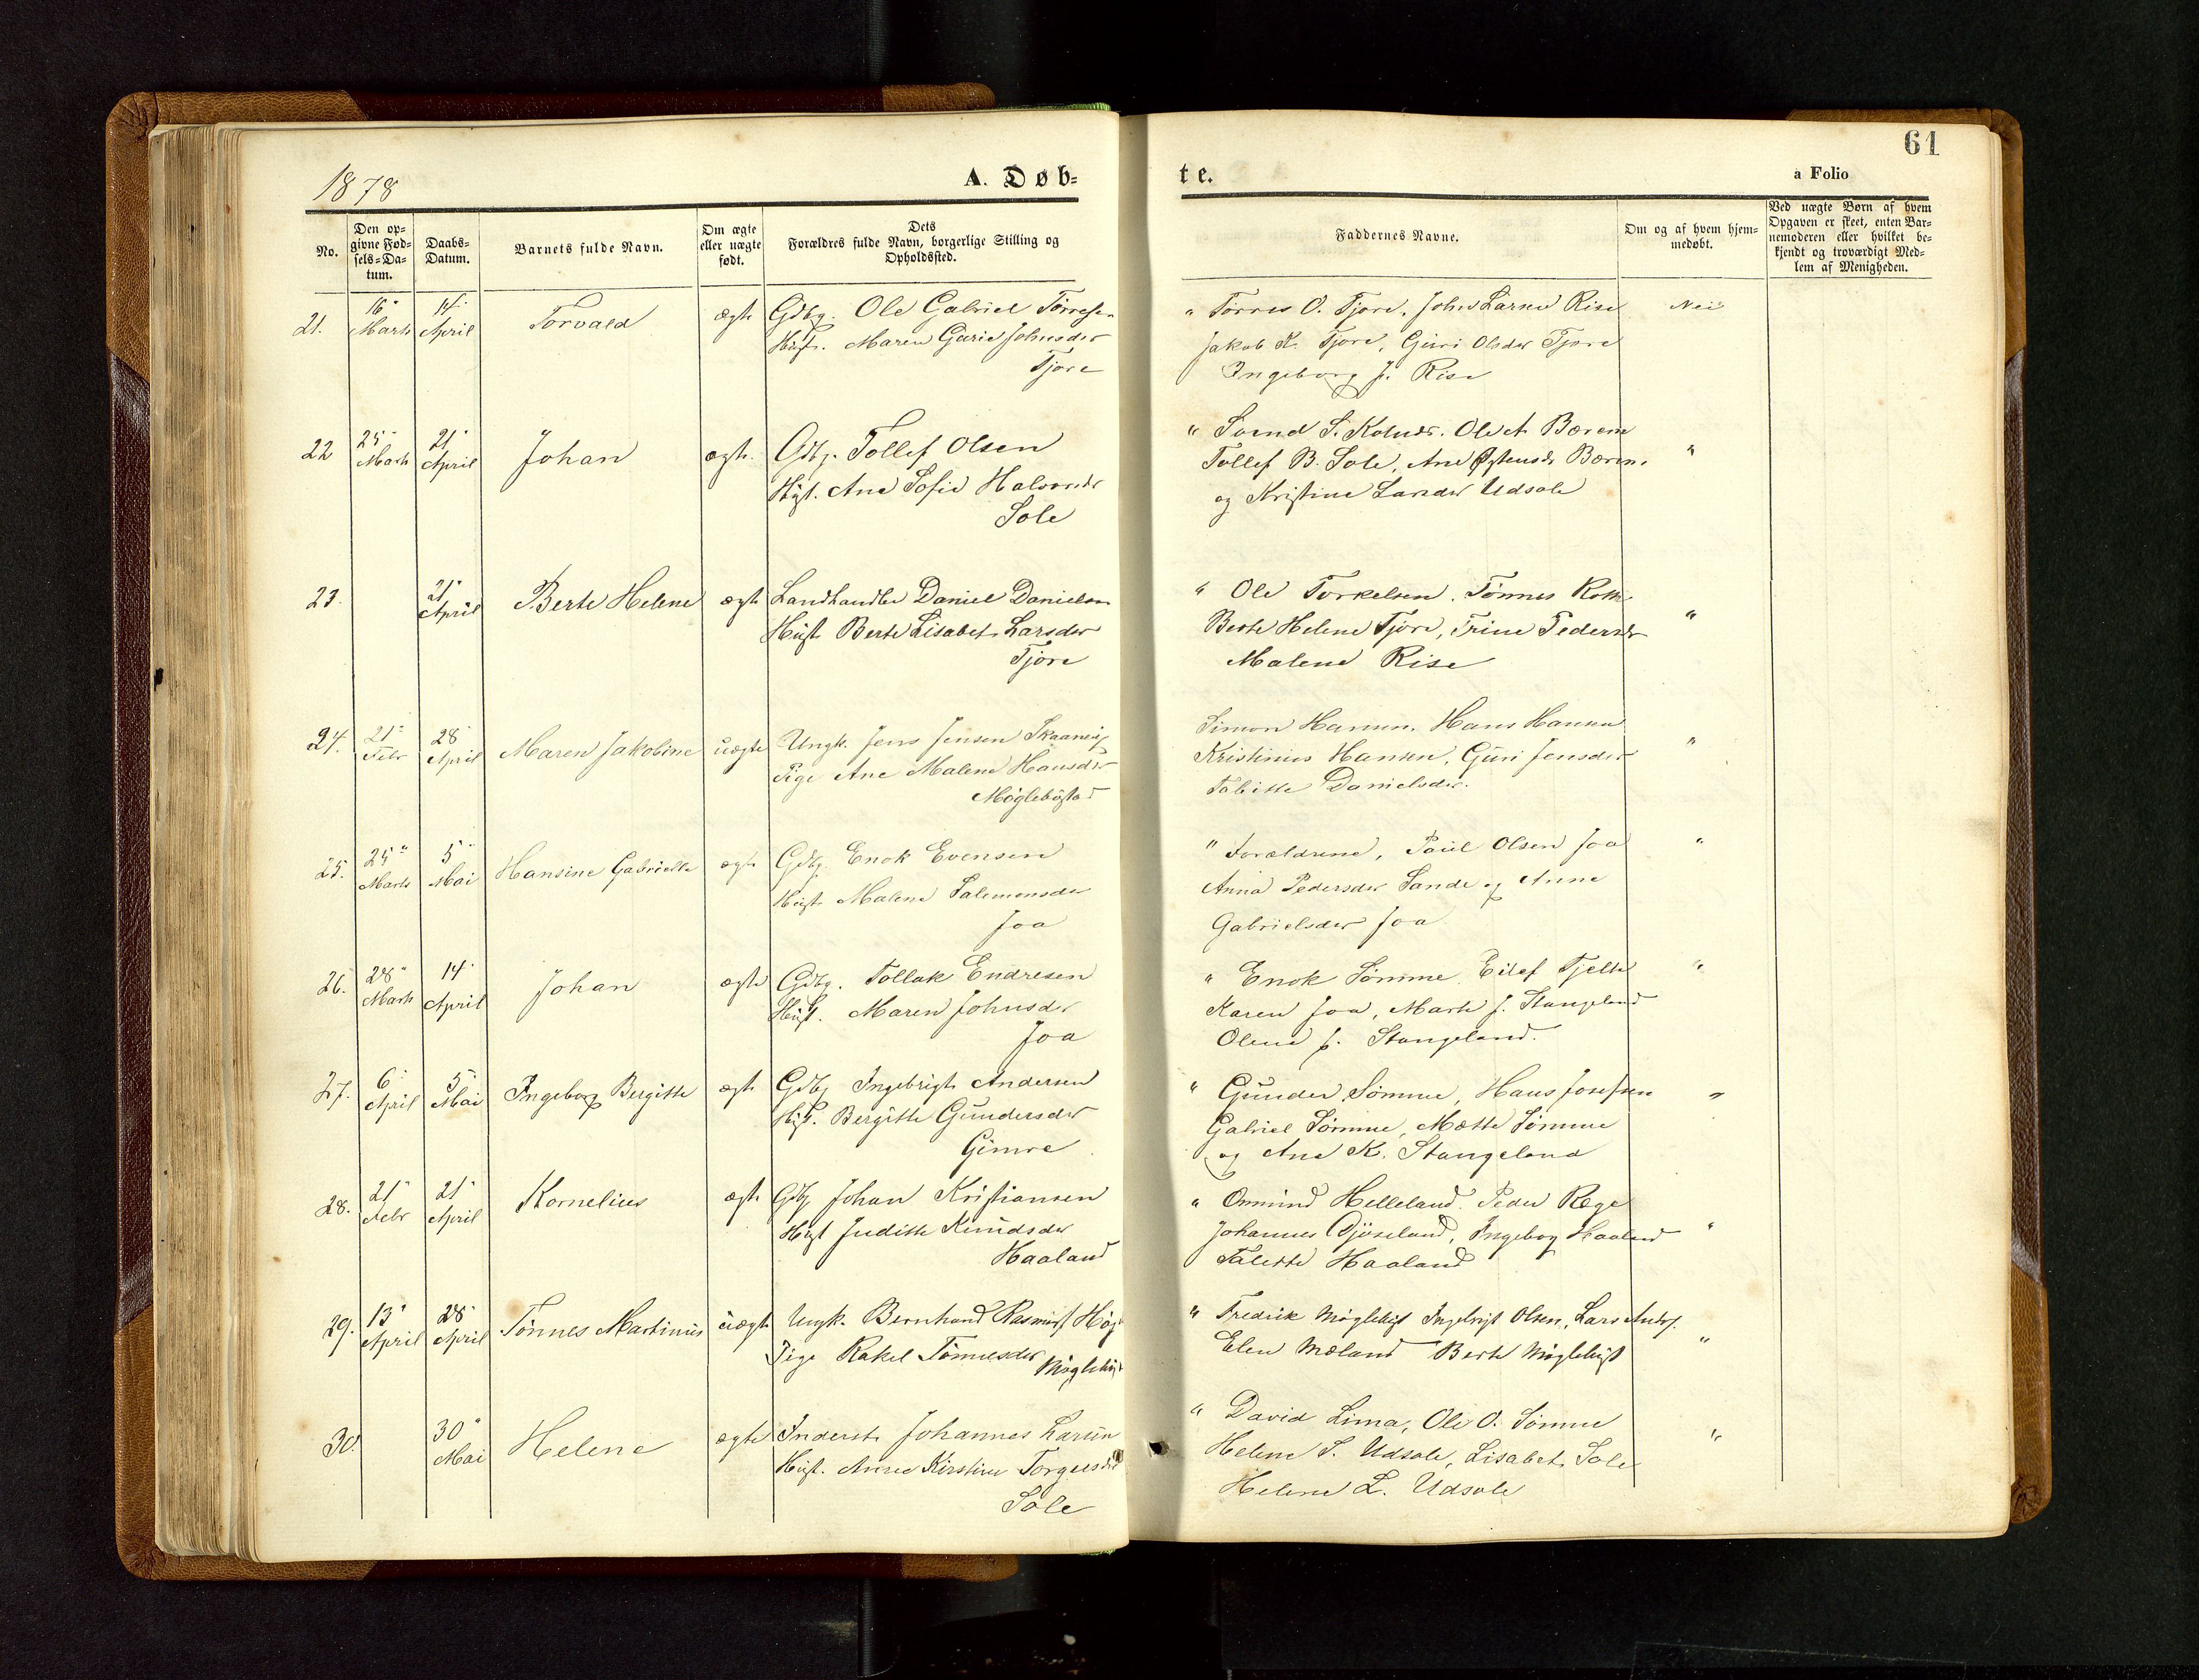 1878
A. Døb=
te.
61
a Folio
No.
Den op=
givne Fød=
sels=Da=
tum.
Daabs=
Datum.
Barnets fulde Navn.
Om ægte
eller uægte
født.
Dets
Forældres fulde Navn, borgerlige Stilling og
Opholdssted.
Faddernes Navne.
Om og af hvem hjem=
medøbt.
Ved uægte Børn af hvem
Opgaven er skeet, enten Bar=
nemoderen eller hvilket be=
kjendt og troværdigt Med=
lem af Menigheden.
21. 16 Marts 14 April Torvald ægte Gdbg. Ole Gabriel Tørresen
Hust. Maren Gurie Johnsdr
Tjore
" Tørres O. Tjore, John Larsen Rise Nei
Jakob K. Tjore, Guri Olsdr Tjore
Ingeborg J. Rise
22 25 Marts 21 April Johan ægte Gdbg. Tollef Olsen
Hust. Ane Sofie Halvorsdr
Sole
" Svend S. Ole A. Bærem "
Tollef B. Sole, Ane Østensdr Bærem
og Kristine Larsdr Udsole
23. 21 April Berte Helene ægte Landhandler Daniel Danielsen
Hust Berte Lisabet Larsdr
Tjore
" Ole Torkelsen. Tønnes Roth "
Berte Helene Tjore, Trine Pedersdr
Malene Rise
24. 21 Febr 28 April Maren Jakobine uægte Ungk. Jens Jensen Skaanevig
Pige Ane Malene Hansdr
Møglebøstad
Simon Hansen. Hans Hansen "
Kristinius Hansen, Guri Jensdr
Tabitte Danielsdr.
25. 25 Marts 5 Mai Hansine Gabrielle ægte Gdbg. Enok Evensen
Hust Malene Salemonsdr
Joa
" Forældrene, Paul Olsen Joa "
Anna Pedersdr Sande og Anne
Gabrielsdr Joa
26. 28 Marts 14 April Johan ægte Gdbg. Tollak Endresen
Hust. Maren Johnsdr
Joa
" Enok Sømme. Eilef Tjelte "
Karen Joa, Marte J. Stangeland
Olene J. Stangeland.
27. 6 April 5 Mai Ingeborg Bergitte ægte Gdbg Ingebrigt Andersen
Hust. Bergitte Gundersdr
Gimre
" Gunder Sømme, Hans Josefsen "
Gabriel Sømme, Mette Sømme
og Ane K. Stangeland
28. 21 Febr 21 April Kornelius ægte Gdbg Johan Kristiansen
Hust Juditte Knudsdr
Haaland
" Ommund Helleland. Peder Rege "
Johannes Gjøseland, Ingeborg Haaland
Talette Haaland
29. 13 April 28 April Tønnes Martinus uægte Ungk. Bernhard Rasmuss
Pige Rakel Tønnesdr
" Fredrik Møglebust Ingebrigt Olsen, Lars Anders.
Elen Mæland Berte Møglebust "
30. 30 Mai Helene ægte Inderst Johannes Larsen
Hust. Anne Kirstine Torgersdr
Sole
" David Lima, Ole O. Sømme "
Helene S. Udsole, Lisabet Sole
Helene L. Udsole